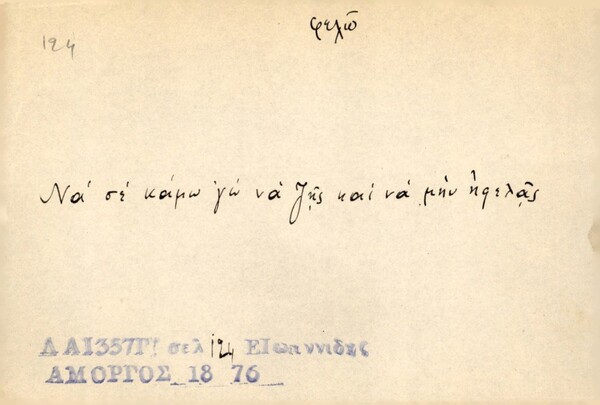 φελῶ
124
Νά σέ κάμω 'γώ νά ζῇς καί νά μήν ἠφελᾷς
ΔΑΙ357Γ! σελ 124 ΕΙωαννιδης
ΑΜΟΡΓΟΣ 18 76